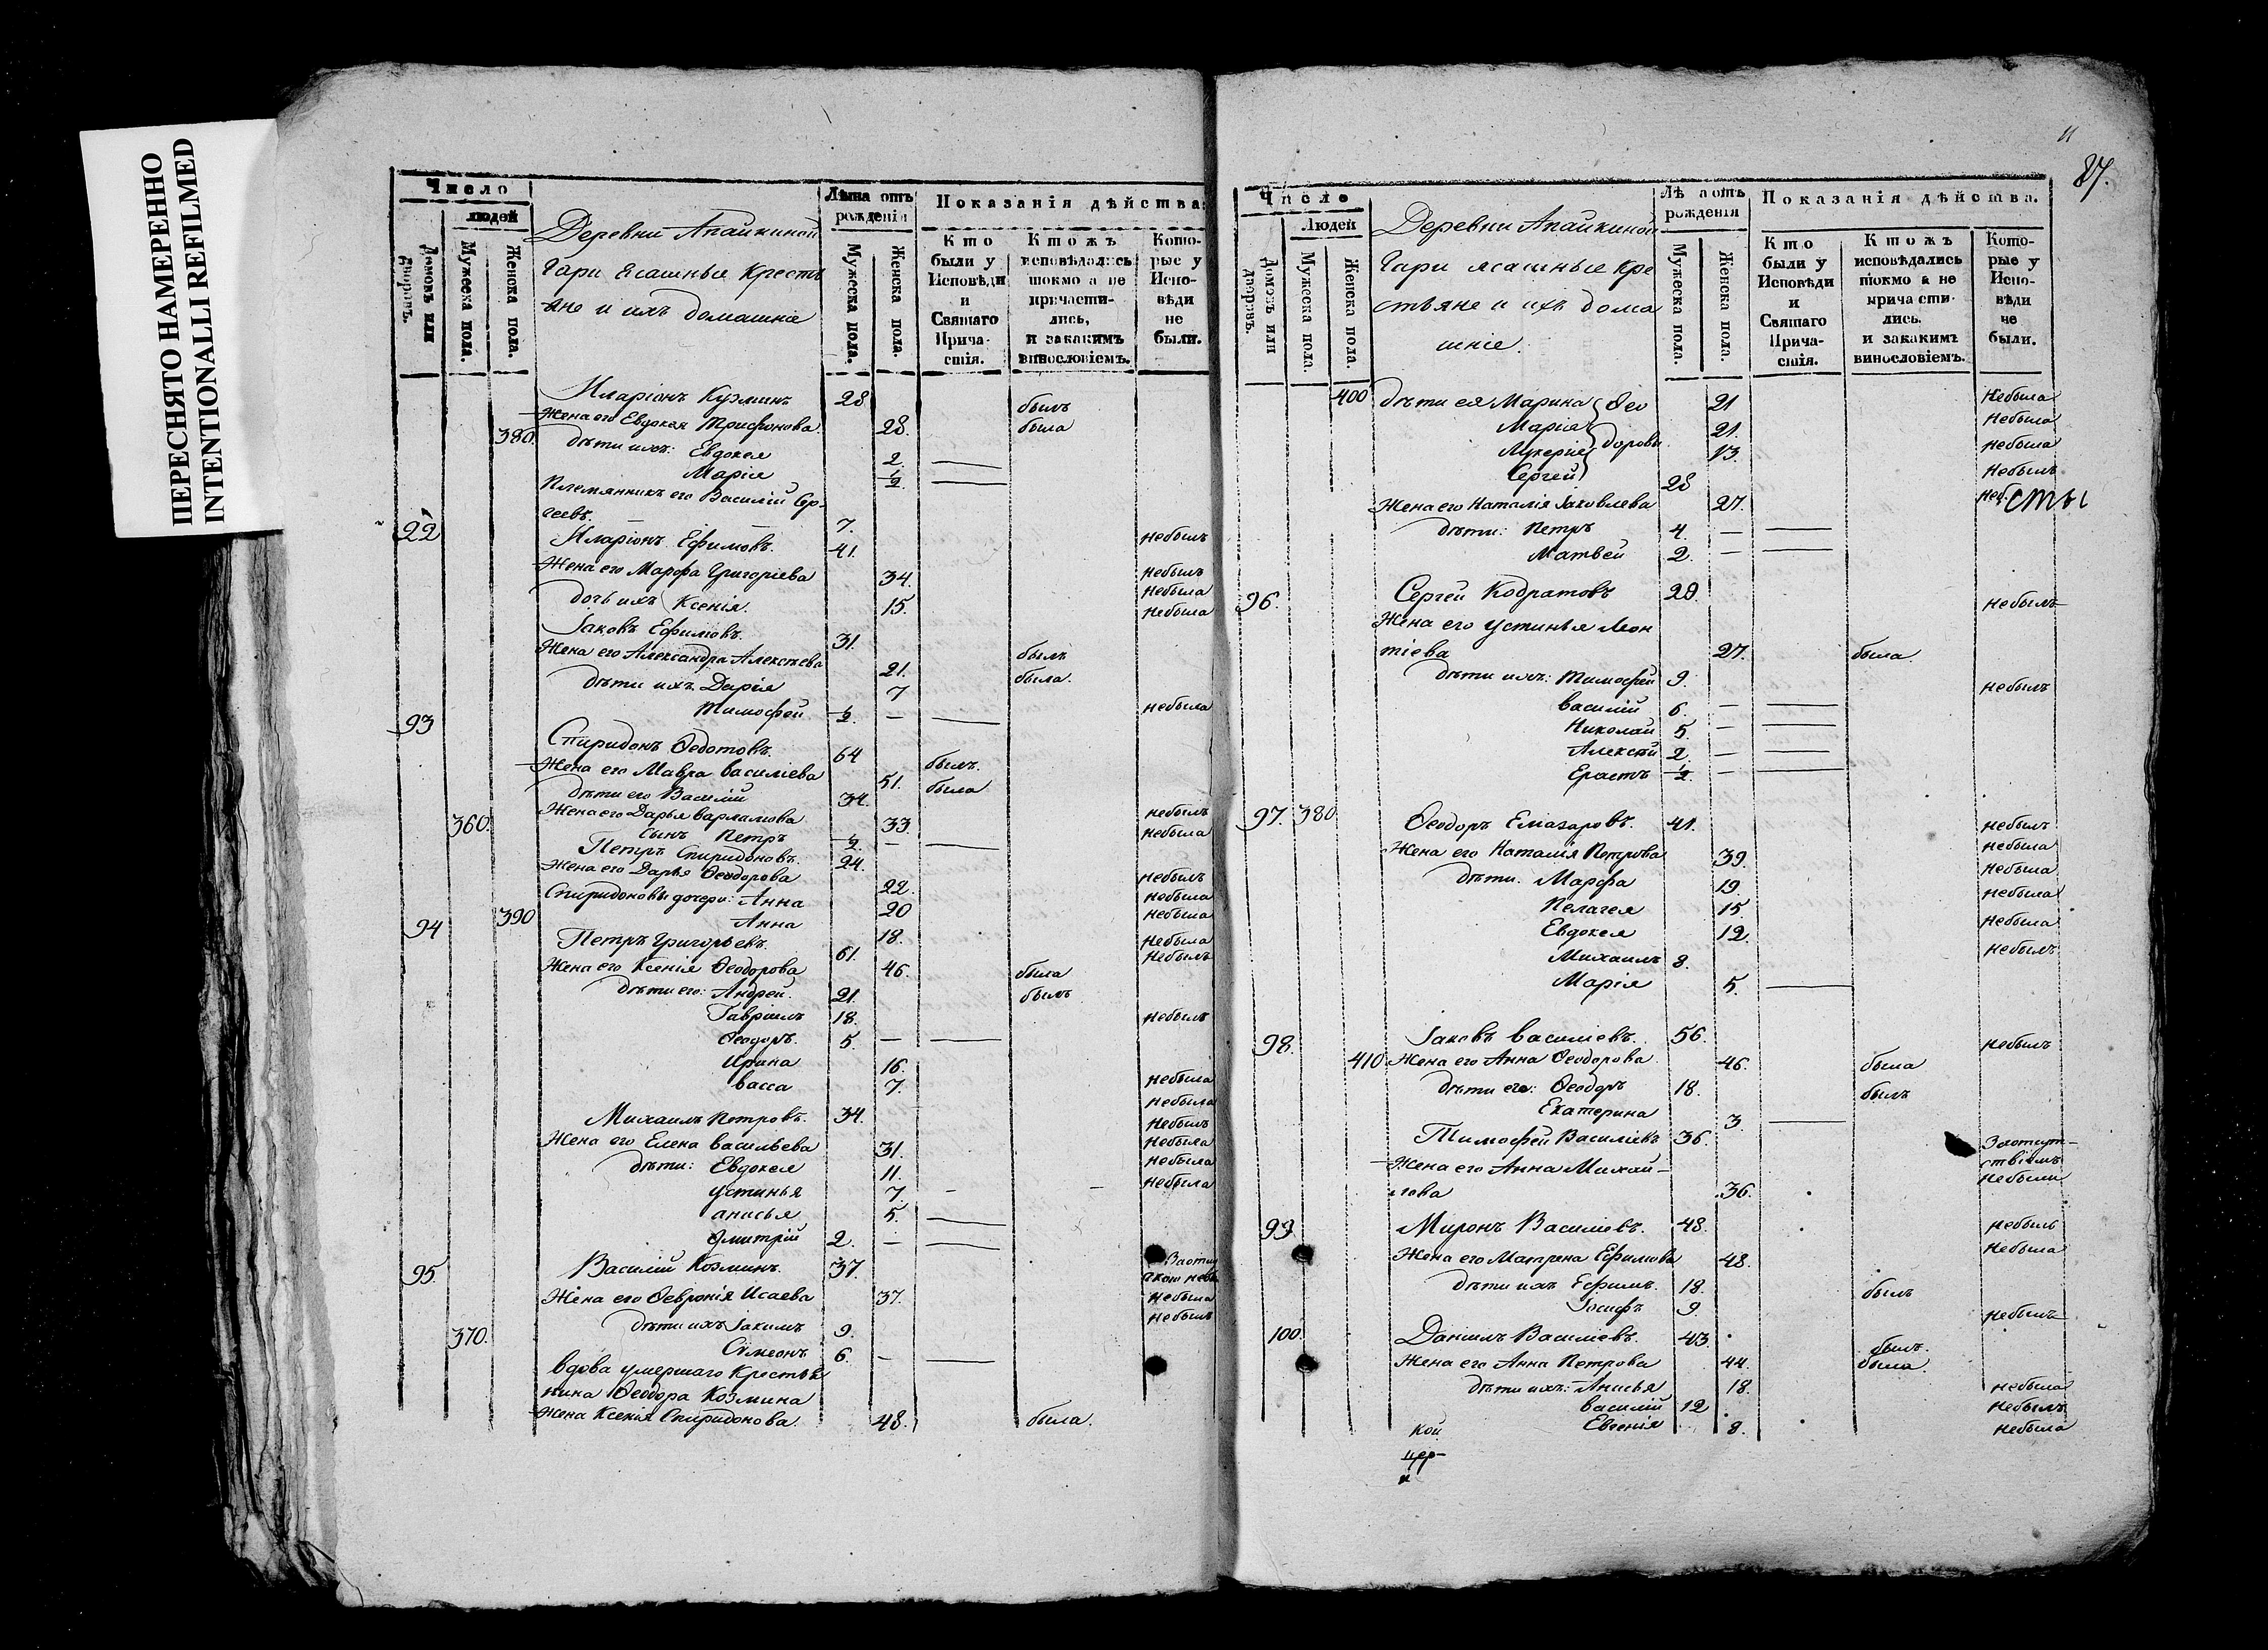 ПЕРЕСНЯТО НАМЕРЕННО
INTENTIONALLI REFILMED
Число
людей
Домовъ или дворовъ.
Мужеска пола.
Женска пола.
Деревни Апайкиной
Гари Ясашныя Кресть
яне и ихъ домашнiе
Лѣта отъ рожденiя
Мужеска пола.
Женска пола.
Показанiя дѣйства
Кто были у Исповѣди и Святаго Прича-стiя.
Ктожъ исповѣдались токмо а не причасти-лись, и закакимъ винословiемъ.
Кото-рые у Испо-вѣди не были.
Иларiонъ Кузминъ 28 былъ
Жена его Евдокея Трифонова 28. была
380. дѣти ихъ: Евдокея 2.
Марiя ½
Племянникъ его Василiй Сер-
геевъ. 7. небылъ
22 Иларiонъ Ефимовъ. 41. небылъ
Жена его Марфа Григорiева 34. небыла
дочь ихъ Ксенiя. 15. небыла
Iаковъ Ефимовъ. 31. былъ
Жена его Александра Алексѣева 21. была.
дѣти ихъ Дарiя 7 небыла
Тимофей ½ —
93 Спиридонъ Ѳедотовъ. 64 былъ.
Жена его Мавра василiева 51. была
дѣти его Василiй 34. небылъ
360. Жена его Дарья варламова 33. небыла
сынъ Петръ ½ —
Петръ Спиридоновъ. 24. небылъ
Жена его Дарья Ѳеодорова 22. небыла
Спиридоновы дочери: Анна 20 небыла
390 Анна 18. небыла
94 Петръ Григорьевъ. 61. небылъ
Жена его Ксенiя Ѳеодорова 46. была
дѣти его: Андрей. 21. былъ
Гаврiилъ 18. небылъ
Ѳеодоръ. 5. —
Ирина 16. небыла
васса 7. небыла
Михаилъ Петровъ. 34. небылъ
Жена его Елена васильева 31. небыла
дѣти: Евдокея 11. небыла
устинья 7. небыла
анисья 5.
Дмитрiй 2. —
95. Василiй Козминъ. 37.
Жена его Ѳевронiя Исаева 37. небыла
дѣти ихъ Iакимъ 9. небылъ
370. Симеонъ. 6. —
вдова умершаго Крестья
нина Ѳеодора Козмина
Жена Ксенiя Спиридонова. 48. была.
11
87.
Число
Людей
Домовъ или дворовъ.
Мужеска пола.
Женска пола.
Деревни Апайкиной
Гари ясашныя Кре
стьяне и ихъ дома
шнiе.
Лѣ а отъ рожденiя
Мужеска пола.
Женска пола.
Показанiя дѣйства.
Кто были у Исповѣди и Святаго Прича-стiя.
Ктожъ исповѣдались токмо а не прича сти-лись. и закакимъ винословiемъ.
Кото-рые у Испо-вѣди не были.
400 дѣти ея Марина Ѳео 21 Небыла
Марiя 21. Небыла
Лукерiя доровы 13. небыла
Сергей 28 Небылъ
Жена его Наталiя Iаковлева 27. неб. сты
дѣти: Петръ 4. —
Матвей 2. —
96. Сергей Кодратовъ 29. небылъ
Жена его устинья Леон
тiева 27. была.
дѣти ихъ: Тимофей 9. небылъ
василiй 6. —
Николай 5. —
Алексѣй 2. —
Ерастъ ½ —
97. 380 Ѳеодоръ Елиазаровъ. 41. небылъ
Жена его Наталiя Петрова 39. небыла
дѣти. Марфа 19. небыла
Пелагея 15. небыла
Евдокея 12. небыла
Михаилъ 8. небылъ
Марiя 5.
98. Iаковъ василiевъ. 56. небылъ
410 Жена его Анна Ѳеодорова 46. была
дѣти его: Ѳеодоръ 18. былъ
Екатерина 3.
Тимофей Василiевъ 36. Заотсут-
ствiемъ
Жена его Анна Михай- небыли
лова 36.
99. Миронъ Василiевъ. 48. небылъ
Жена его Матрена Ефимова 48. небыла
дѣти ихъ Ефимъ. 18. былъ
Iосифъ 9. небылъ
100. Данiилъ Василiевъ. 43. былъ.
Жена его Анна Петрова 44. была
дѣти ихъ: Анисья 18. небыла
василiй 12 небылъ
Евгенiя 8. небыла
кой
цер-
к